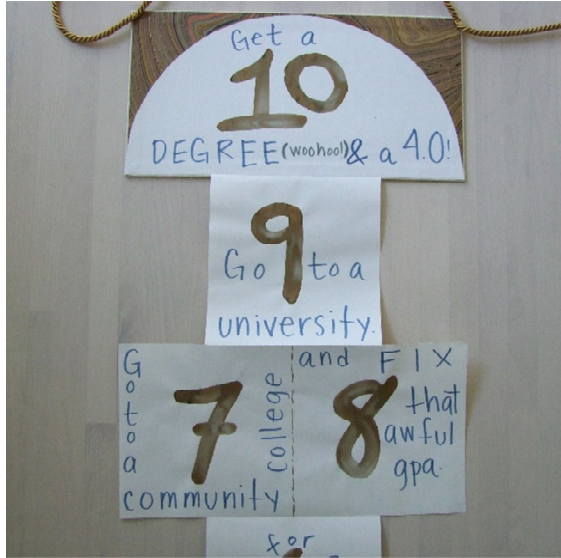 Get a
10
DEGREE (woohoo!) & a 4.0!
9
Go to a
university.
Go to a
community
college
7
and FIX
that
awful
gpa.
8
for